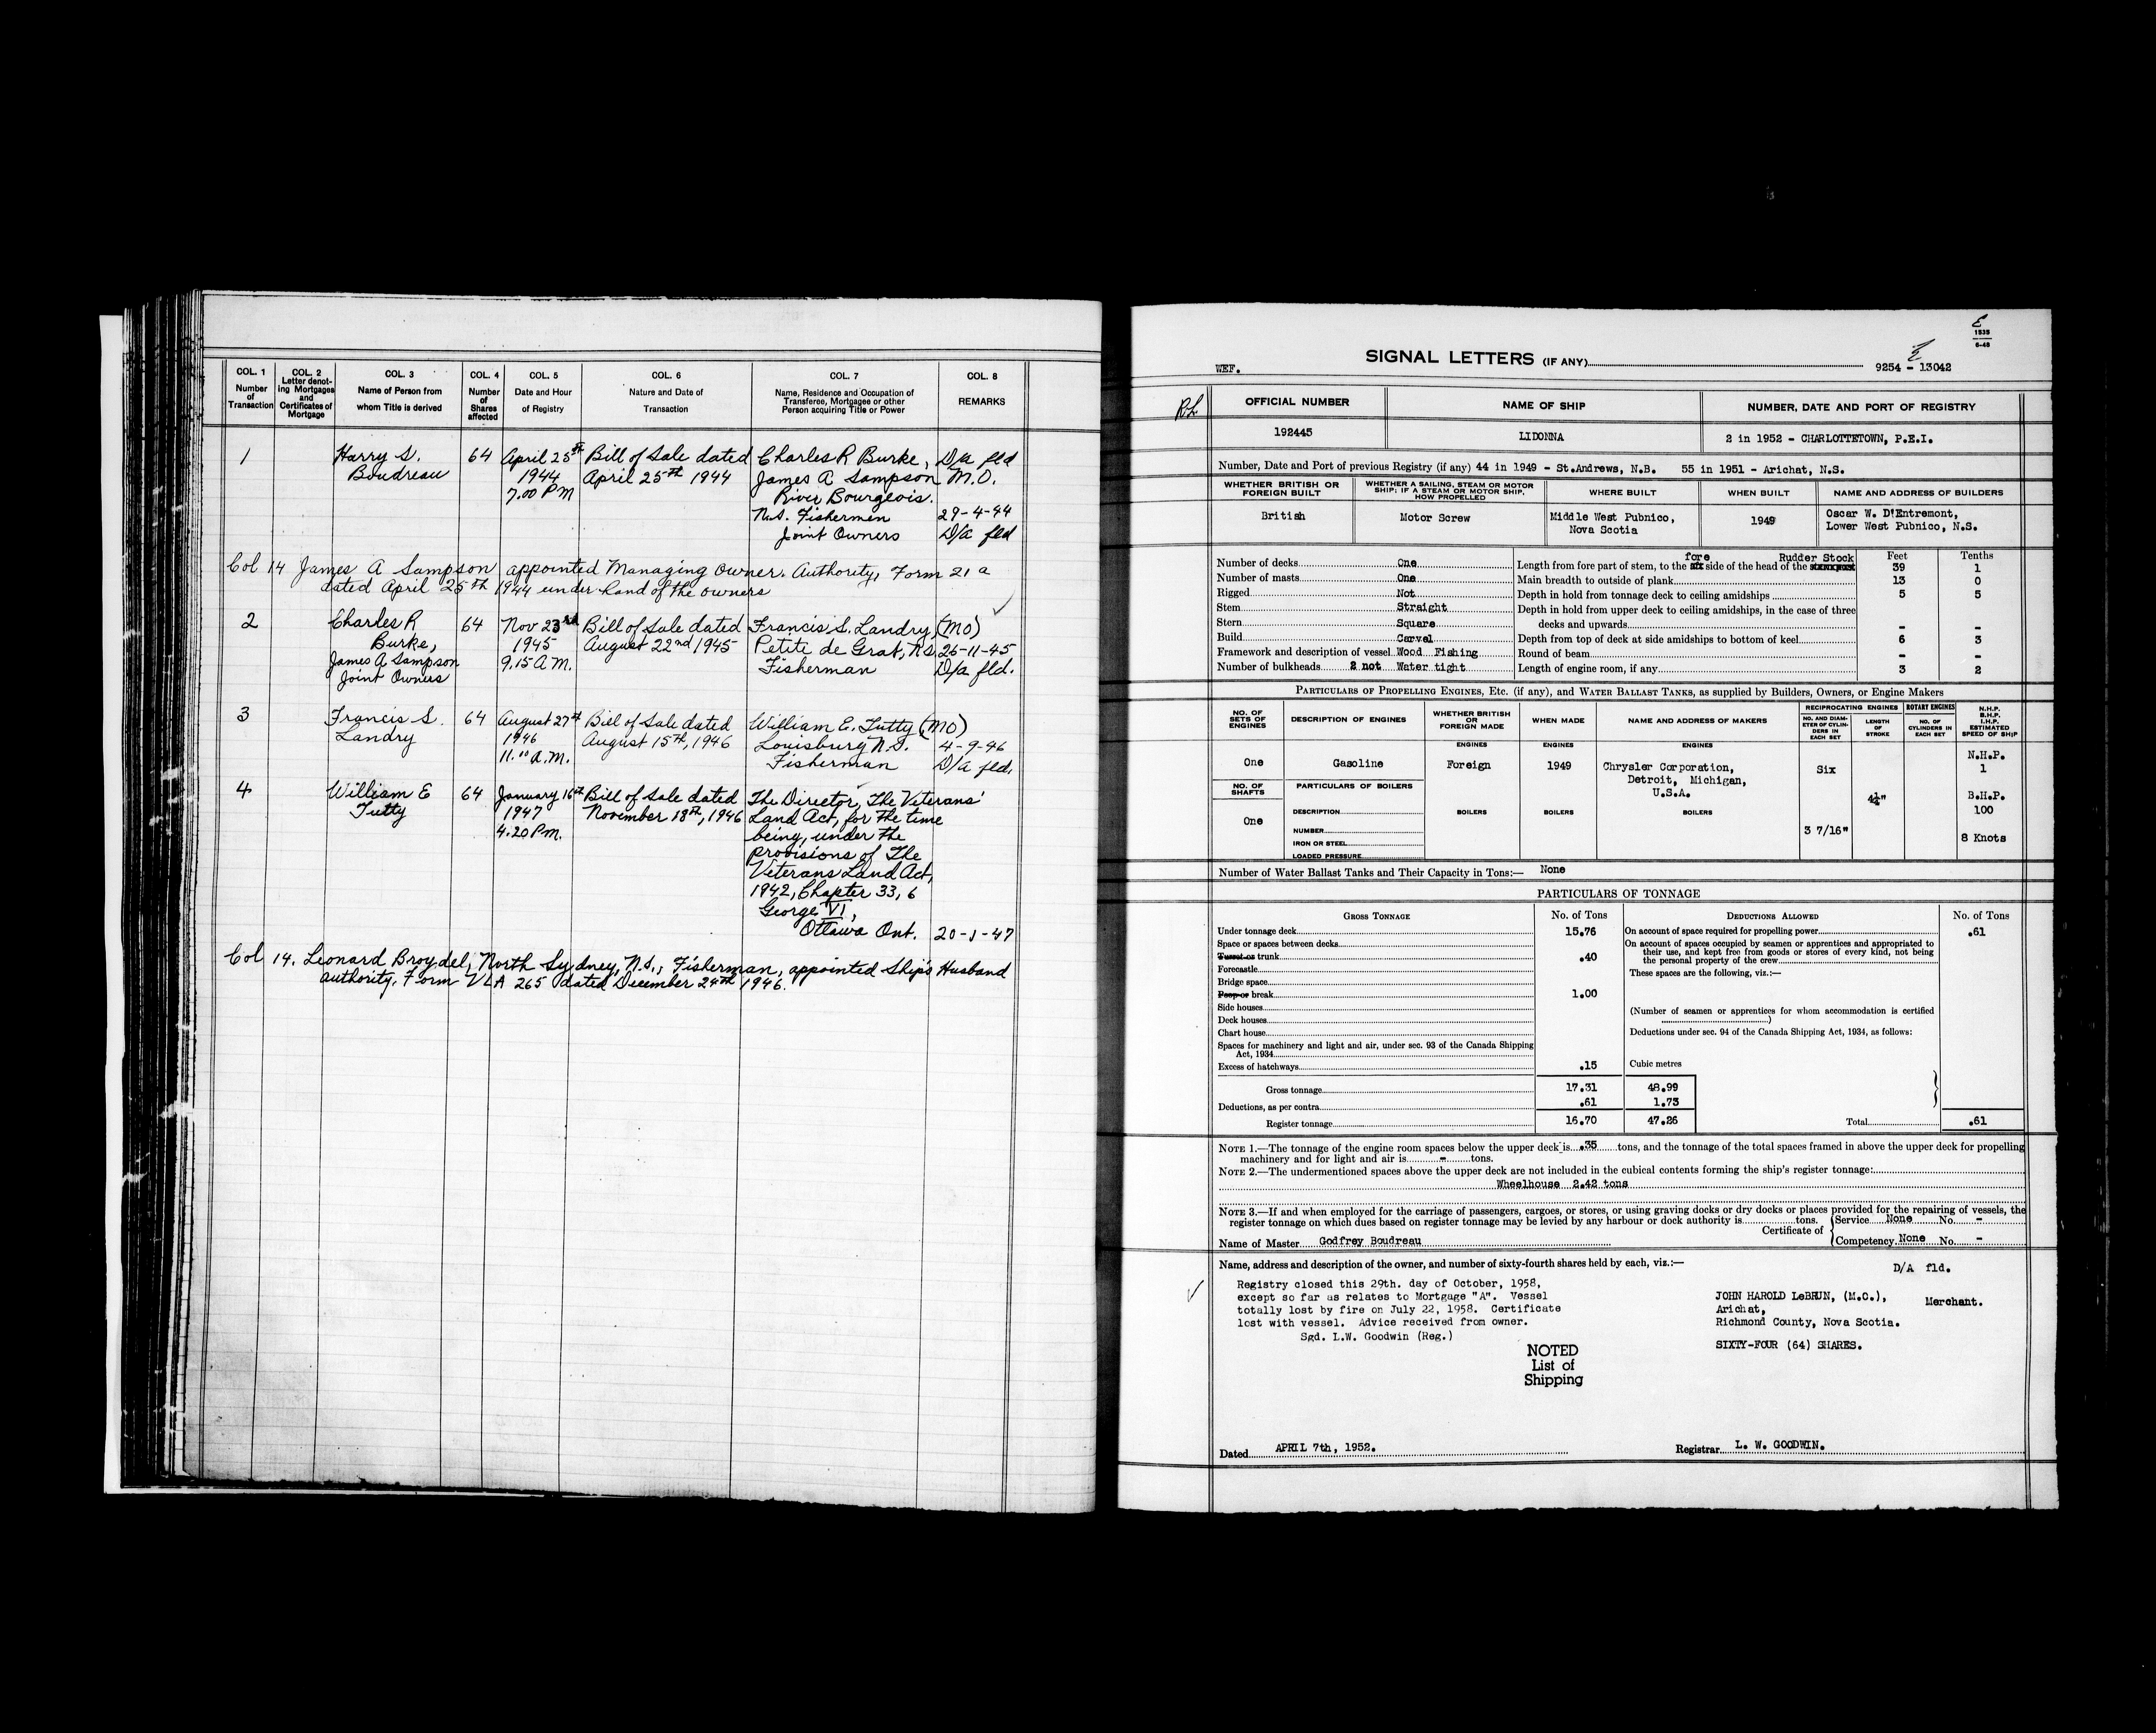 COL. 1 COL. 2 COL. 3 COL. 4 COL. 5 COL. 6 COL. 7 COL. 8
Number of Transaction
Letter denoting Mortgages and Certificates of Mortgage
Name of Person from whom Title is derived
Number of Shares affected
Date and Hour of Registry
Nature and Date of Transaction
Name, Residence and Occupation of Transferee, Mortgagee or other Person acquiring Title or Power
REMARKS
1 Harry S. 64 April 25th Bill of Sale dated Charles R Burke, D/a fld
Boudreau 1944 April 25th 1944 James A Sampson M.O.
7.00 PM River Bourgeois.
N.S. Fishermen 29-4-44
Joint Owners D/a fld
Col 14 James A Sampson appointed Managing Owner. Authority, Form 21 a
dated April 25th 1944 under hand of the owners
2 Charles R 64 Nov 23rd Bill of Sale dated Francis S. Landry (MO)
Burke, 1945 August 22nd 1945 Petite de Grat, NS 26-11-45
James A Sampson 9.15 A M. Fisherman D/a fld.
Joint Owners
3 Francis S. 64 August 27th Bill of Sale dated William E. Tutty (MO)
Landry 1946 August 15th, 1946 Louisburg N.S. 4-9-46
11.00 a.m. Fisherman D/a fld.
4 William E 64 January 16th Bill of Sale dated The Director, The Veterans'
Tutty 1947 November 18th, 1946 Land Act, for the time
4.20 P.m. being, under the
provisions of The
Veterans Land Act,
1942, Chapter 33, 6
George VI,
Ottawa Ont. 20-1-47
Col 14. Leonard Broydel, North Sydney, N.S., Fisherman, appointed Ship's Husband
authority. Form VLA 265 dated December 24th 1946.
E
1535
6-48
WEF. SIGNAL LETTERS (IF ANY) 9254 - 13042
RL
OFFICIAL NUMBER NAME OF SHIP NUMBER, DATE AND PORT OF REGISTRY
192445 LIDONNA 2 in 1952 - CHARLOTTETOWN, P.E.I.
Number, Date and Port of previous Registry (if any) 44 in 1949 - St.Andrews, N.B. 55 in 1951 - Arichat, N.S.
WHETHER BRITISH OR FOREIGN BUILT
WHETHER A SAILING, STEAM OR MOTOR SHIP; IF A STEAM OR MOTOR SHIP, HOW PROPELLED
WHERE BUILT
WHEN BUILT
NAME AND ADDRESS OF BUILDERS
British Motor Screw Middle West Pubnico, 1949 Oscar W. D'Entremont,
Nova Scotia Lower West Pubnico, N.S.
fore Rudder Stock Feet Tenths
Number of decks One Length from fore part of stem, to the aft side of the head of the sternpost 39 1
Number of masts One Main breadth to outside of plank 13 0
Rigged Not Depth in hold from tonnage deck to ceiling amidships 5 5
Stem Straight Depth in hold from upper deck to ceiling amidships, in the case of three
Stern Square decks and upwards - -
Build Carvel Depth from top of deck at side amidships to bottom of keel 6 3
Framework and description of vessel Wood Fishing Round of beam - -
Number of bulkheads 2 not Water tight Length of engine room, if any 3 2
PARTICULARS OF PROPELLING ENGINES, ETC. (if any), and WATER BALLAST TANKS, as supplied by Builders, Owners, or Engine Makers
NO. OF SETS OF ENGINES
DESCRIPTION OF ENGINES
WHETHER BRITISH OR FOREIGN MADE
WHEN MADE
NAME AND ADDRESS OF MAKERS
RECIPROCATING ENGINES ROTARY ENGINES
NO. AND DIAMETER OF CYLINDERS IN EACH SET
LENGTH OF STROKE
NO. OF CYLINDERS IN EACH SET
N.H.P. B.H.P. I.H.P. ESTIMATED SPEED OF SHIP
ENGINES ENGINES ENGINES
N.H.P.
One Gasoline Foreign 1949 Chrysler Corporation, Six 1
Detroit, Michigan,
U.S.A.
NO. OF SHAFTS
PARTICULARS OF BOILERS
4¼"
B.H.P.
DESCRIPTION BOILERS BOILERS BOILERS 100
One
NUMBER 3 7/16"
IRON OR STEEL 8 Knots
LOADED PRESSURE
Number of Water Ballast Tanks and Their Capacity in Tons:— None
PARTICULARS OF TONNAGE
GROSS TONNAGE No. of Tons DEDUCTIONS ALLOWED No. of Tons
Under tonnage deck 15.76 On account of space required for propelling power .61
Space or spaces between decks On account of spaces occupied by seamen or apprentices and appropriated to
Turret or trunk .40 their use, and kept free from goods or stores of every kind, not being
Forecastle the personal property of the crew
Bridge space These spaces are the following, viz.:—
Poop or break 1.00
Side houses (Number of seamen or apprentices for whom accommodation is certified
Deck houses )
Chart house Deductions under sec. 94 of the Canada Shipping Act, 1934, as follows:
Spaces for machinery and light and air, under sec. 93 of the Canada Shipping
Act, 1934
Excess of hatchways .15 Cubic metres
Gross tonnage 17.31 48.99
Deductions, as per contra .61 1.73
Register tonnage 16.70 47.26 Total .61
NOTE 1.—The tonnage of the engine room spaces below the upper deck is .35 tons, and the tonnage of the total spaces framed in above the upper deck for propelling
machinery and for light and air is - tons.
NOTE 2.—The undermentioned spaces above the upper deck are not included in the cubical contents forming the ship's register tonnage:
Wheelhouse 2.42 tons
NOTE 3.—If and when employed for the carriage of passengers, cargoes, or stores, or using graving docks or dry docks or places provided for the repairing of vessels, the
register tonnage on which dues based on register tonnage may be levied by any harbour or dock authority is tons.
Certificate of Service None No. -
Name of Master Godfrey Boudreau Competency None No. -
Name, address and description of the owner, and number of sixty-fourth shares held by each, viz.:—
D/A fld.
Registry closed this 29th. day of October, 1958,
except so far as relates to Mortgage "A". Vessel
totally lost by fire on July 22, 1958. Certificate
lost with vessel. Advice received from owner.
Sgd. L.W. Goodwin (Reg.)
JOHN HAROLD LeBRUN, (M.O.), Merchant.
Arichat,
Richmond County, Nova Scotia.
SIXTY-FOUR (64) SHARES.
NOTED
List of
Shipping
Dated APRIL 7th, 1952. Registrar L. W. GOODWIN.